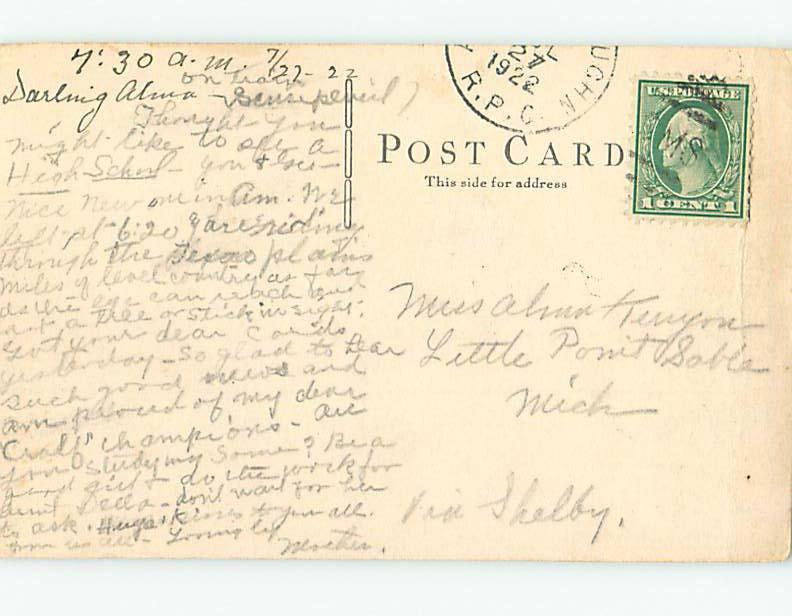 7:30 a.m. 7/27-22
on train
Darling Alma - (Pencil)
Thought you
might like to see a
High School - you & see -
Nice new one in Am. We
left at 6:20 & are riding
through the Texas plains
Miles of level country as far
as the eye can reach and
not a tree or stick in sight.
Got your dear cards
yesterday - So glad to hear
such good news and
am proud of my dear
"Craft" champions - are
you studying some? Be a
good girl & do the work for
aunt Della - don't wait for her
to ask. Hugs & Kisses to you all.
from us all - Lovingly
Mother.
UCHN
27
1922
R.P.O.
POST CARD
This side for address
U.S. POSTAGE
1 CENT 1
Miss Alma Kenyon
Little Point Sable
Mich
Via Shelby.